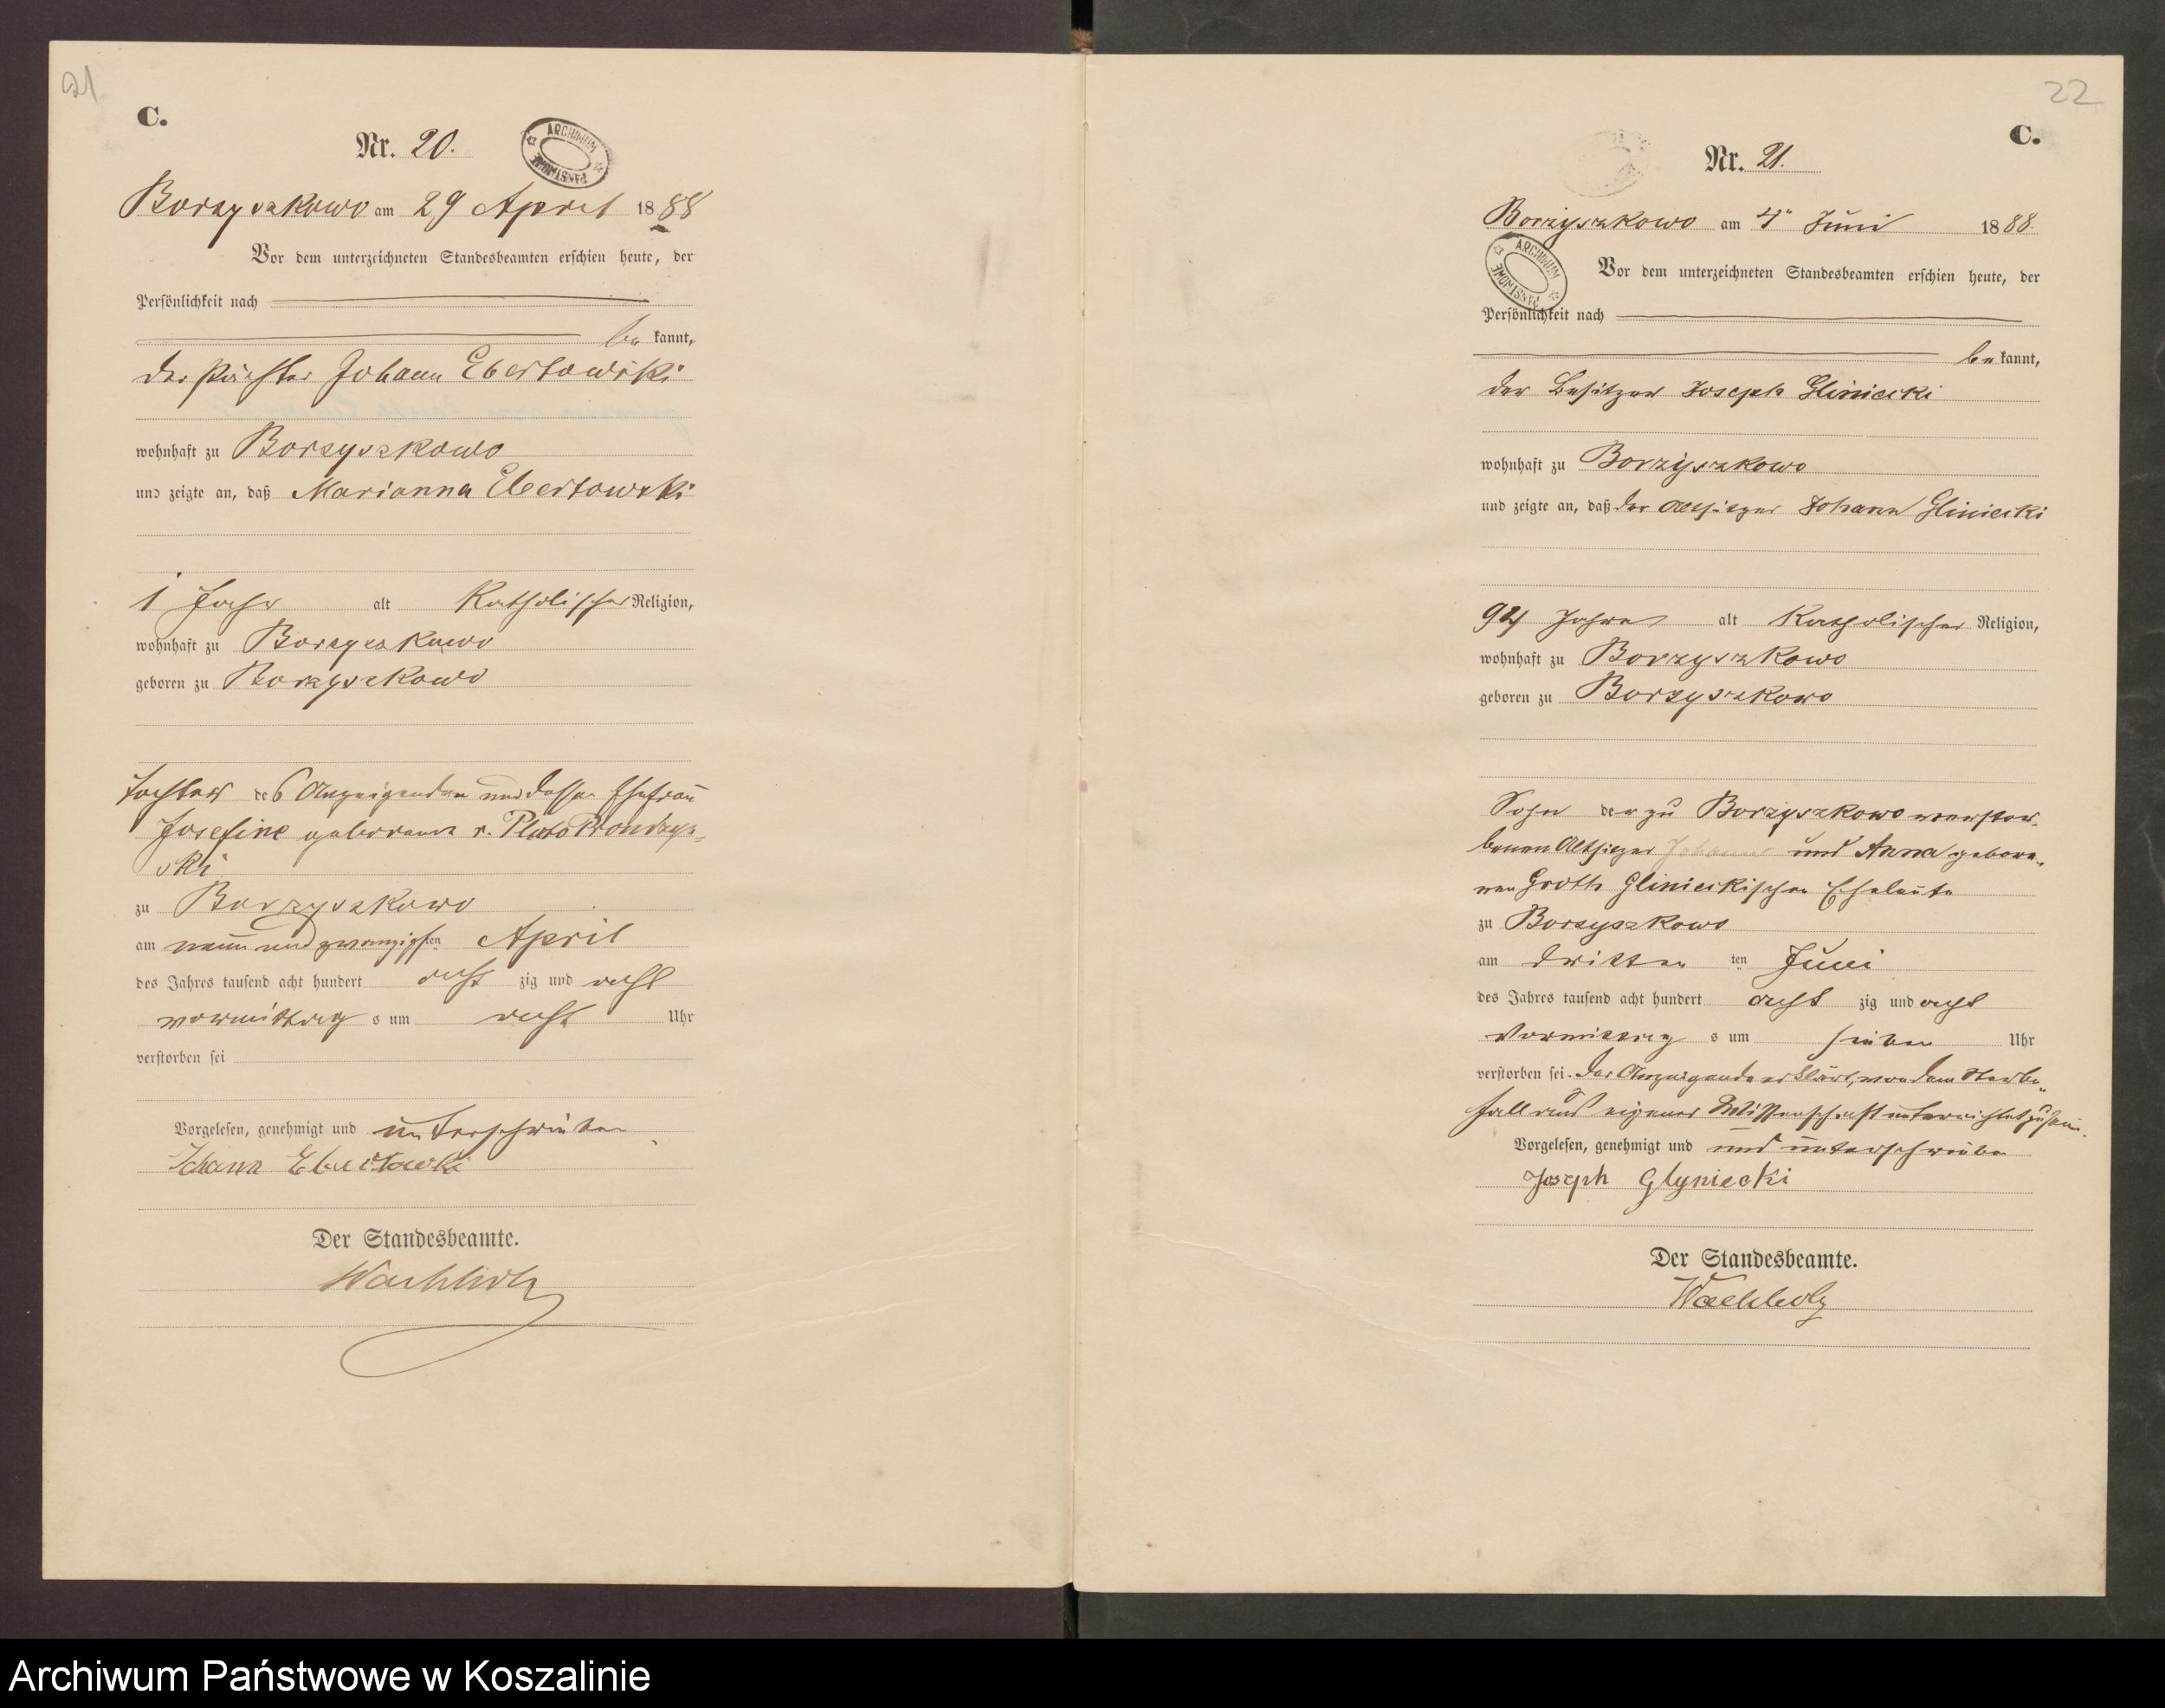 21
C.
Nr. 20.
ARCHIWUM PAŃSTWOWE
Borzyszkowo am 29 April 1888
Vor dem unterzeichneten Standesbeamten erschien heute, der
Persönlichkeit nach
be kannt,
der Pächter Johann Ebertowski
wohnhaft zu Borzyszkowo
und zeigte an, daß Marianna Ebertowski
1 Jahr alt Katholischer Religion,
wohnhaft zu Borzyszkowo
geboren zu Borzyszkowo
Tochter des Anzeigenden und dessen Ehefrau
Josefine geborenen v. Pluto Prondzyn=
ski
zu Borzyszkowo
am neun und zwanzigsten April
des Jahres tausend acht hundert acht zig und acht
vormittag s um acht Uhr
verstorben sei
Vorgelesen, genehmigt und unterschrieben
Johann Ebertowski
Der Standesbeamte.
Wachholz
22
C.
Nr. 21.
Borzyszkowo am 4ten Juni 1888.
ARCHIWUM PAŃSTWOWE
Vor dem unterzeichneten Standesbeamten erschien heute, der
Persönlichkeit nach
be kannt,
der Besitzer Joseph Gliniecki
wohnhaft zu Borzyszkowo
und zeigte an, daß der Altsitzer Johann Gliniecki
94 Jahre alt Katholischer Religion,
wohnhaft zu Borzyszkowo
geboren zu Borzyszkowo
Sohn der zu Borzyszkowo verstor=
benen Altsitzer Johann und Anna gebore=
nen Groth Glinieckischen Eheleute
zu Borzyszkowo
am dritten ten Juni
des Jahres tausend acht hundert acht zig und acht
Vormittag s um sieben Uhr
verstorben sei. Der Anzeigende erklärt, von dem Sterbe=
fall aus eigener Wissenschaft unterrichtet zu sein.
Vorgelesen, genehmigt und und unterschrieben
Joseph Glyniecki
Der Standesbeamte.
Wachholz
Archiwum Państwowe w Koszalinie